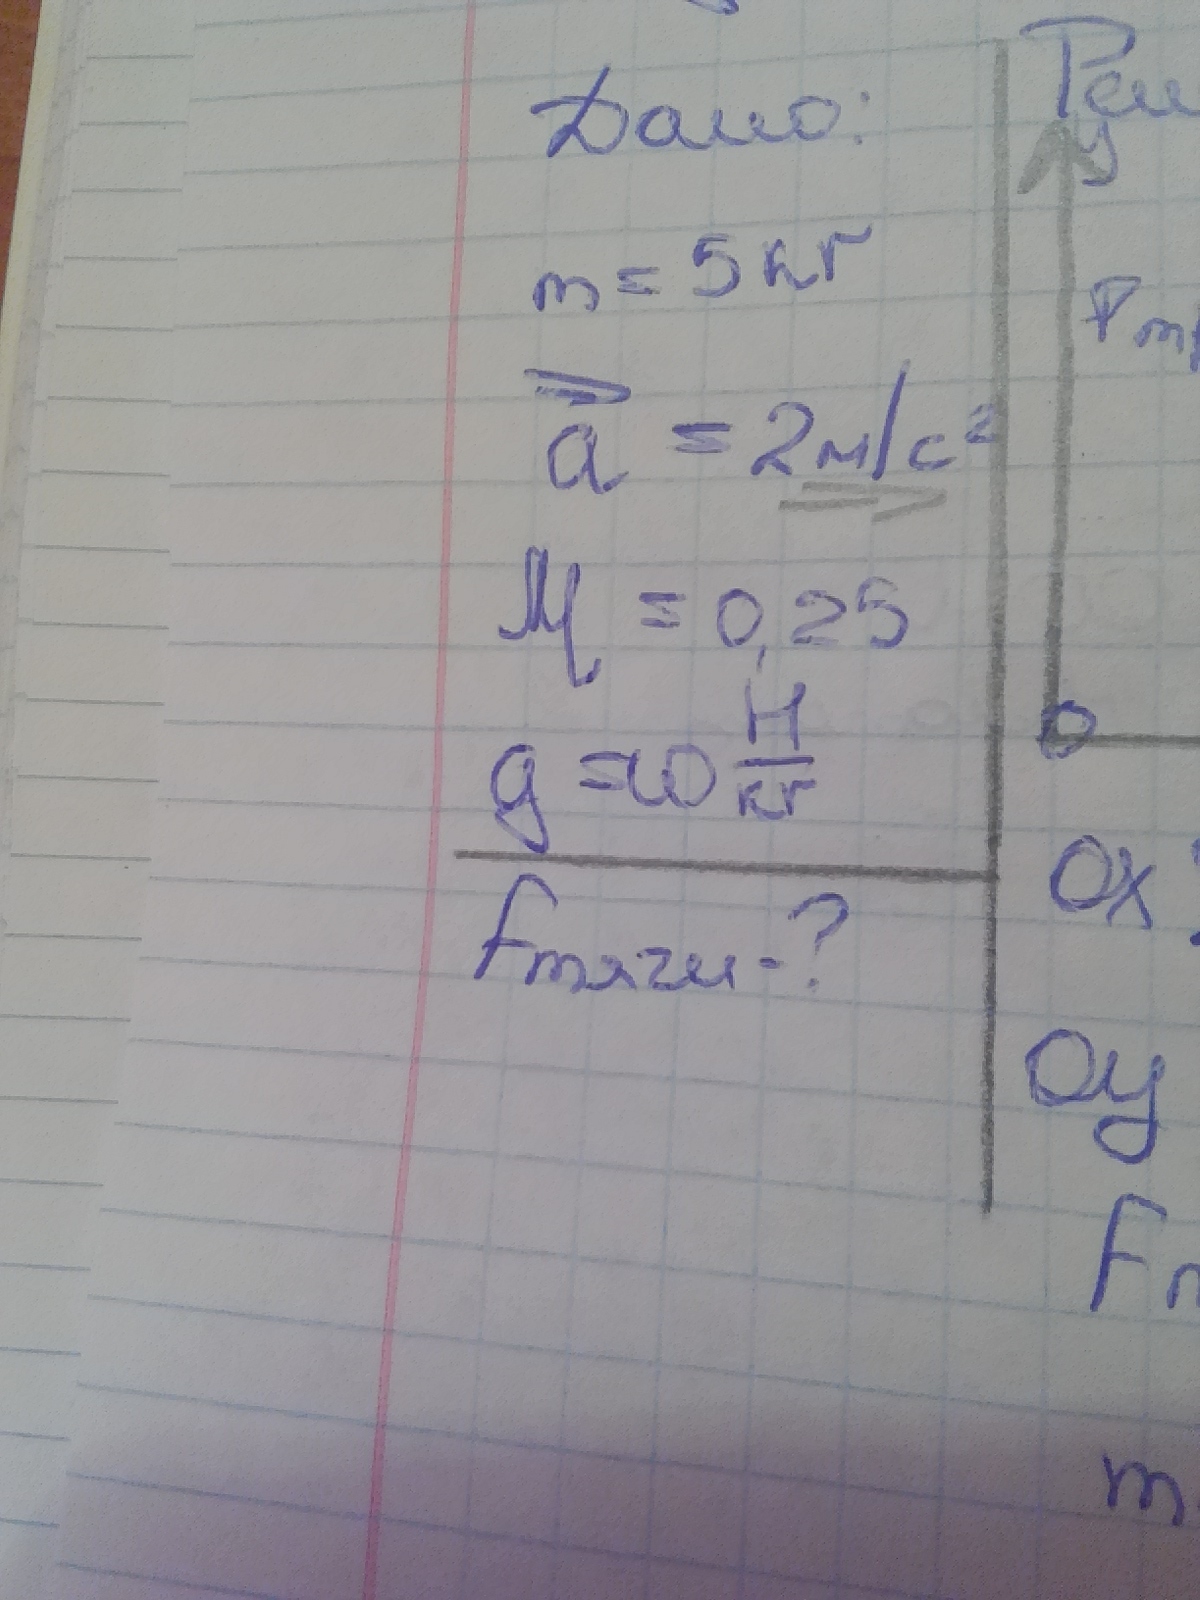 Дано:
m = 5 кг
a = 2 м/с²
μ = 0,25
g = 10 Н/кг
Fтяги - ?
Реш
y
Fтр
0
Ox
Oy
Fт
m